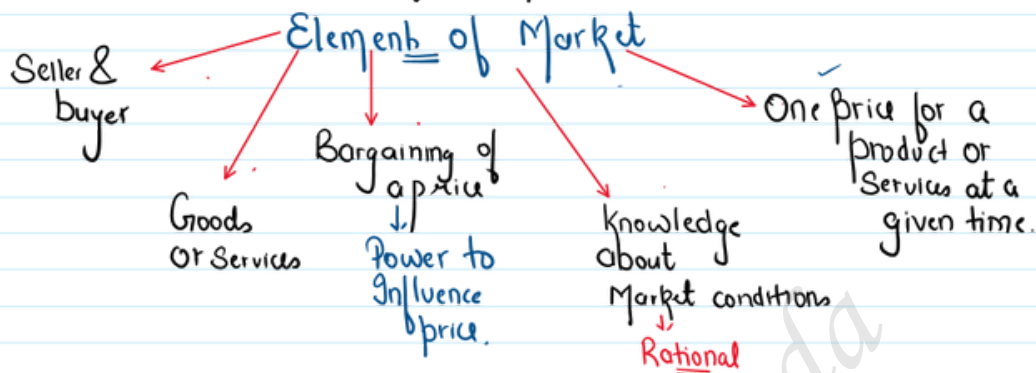 Elements of Market
Seller &
buyer
Goods
or Services
Bargaining of
a price
Power to
Influence
price.
Knowledge
about
Market conditions
Rational
One price for a
product or
Services at a
given time.